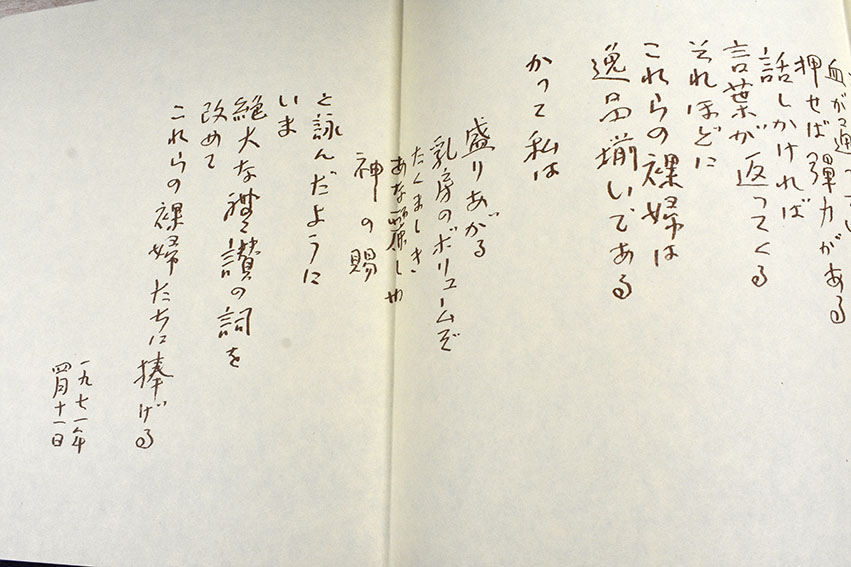 血が通って
押せば彈力がある
話しかければ
言葉が返ってくる
それほどに
これらの裸婦は
逸品揃いである
かつて私は
盛りあがる
乳房のボリュームぞ
たくましき
あな
神の賜
と詠んだように
いま
絶大な禮讃の詞を
改めて
これらの裸婦たちに捧げる
一九七一年
四月十一日